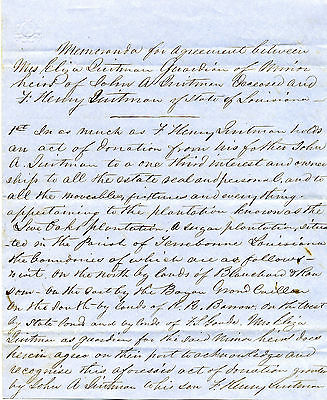 Memoranda for Agreement between
Mrs Eliza Quitman Guardian of Minor
heirs of John A Quitman Deceased and
F. Henry Quitman of State of Louisiana
1st In as much as F Henry Quitman holds
an act of donation from his father John
A. Quitman to a one third interest and owner
ship to all the estate real and personal, and to
all the moveables, fixtures and everything
appertaining to the plantation known as the
Live Oaks plantation, a sugar plantation, situa
ted in the Parish of Terrebonne Louisiana
the boundaries of which are as follows
to wit, on the north by lands of Blanchard &
son - on the East by the Bayou Grand Caillou
on the South by lands of R. R. Barrow, on the west
by State lands and by lands of Mrs Eliza
Quitman as guardian for the said Minor heirs does
herein agree on their part to acknowledge and
recognise this aforesaid act of donation granted
by John A Quitman to his son F. Henry Quitman